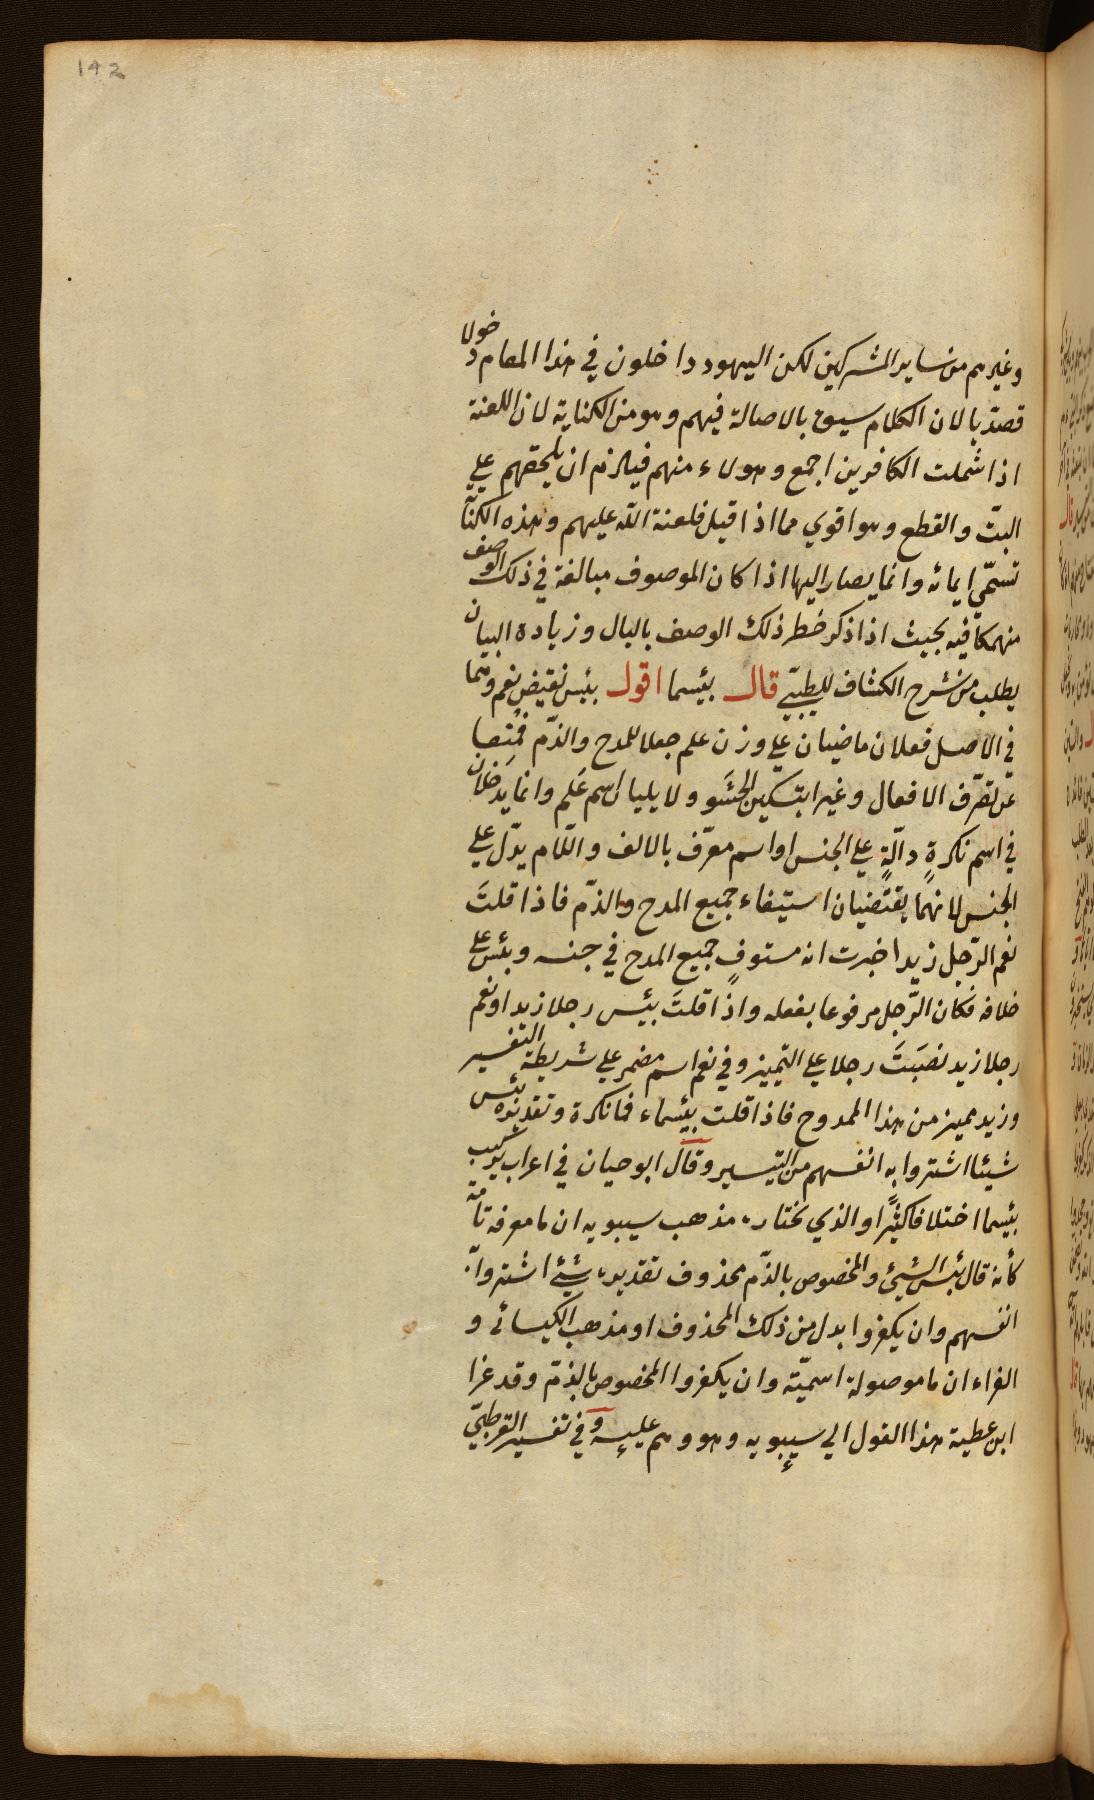 142
وغيرهم من ساير المشركين لكن اليهود داخلون في هذا المقام دخولا
قصديا لان الكلام سيق بالاصالة فيهم وهو من الكناية لان اللعنة
اذا شملت الكافرين اجمع وهولاء منهم فيلزم ان يلحقهم علي
البتّ والقطع وهو اقوي مما اذا قيل فلعنة الله عليهم وهذه الكنا
تسمّي ايمائه وانما يصار اليها اذا كان الموصوف مبالغة في ذلك الوصف
منهمكا فيه بحيث اذا ذكر خطر ذلك الوصف بالبال وزيادة البيان
يطلب من شرح الكشاف للطيبّي قال بئيسما اقول بئيس نقيض نعم وهما
في الاصل فعلان ماضيان علي وزن علم جعلا للمدح والذّم فمُنعا
عن تصرّف الافعال وغيرا بتسكين الحشَو ولا يليان اسم عَلم وانما يدَخلان
في اسم نكرةٍ دالّةٍ علي الجنس او اسم معرّف بالالف واللّام يدّل علي
الجنس لانهما يقتضيان استيفاء جميع المدح والذّم فاذا قلتَ
نعم الرّجل زيد اخبرت انه مستوفٍ جميع المدح في جنسه وبئس علي
خلافه فكان الرّجل مرفوعا بفعله واذا قلتَ بيئس رجلا زيد او نعم
رجلا زيد نصَبَتَ رجلا علي التميز وفي نعم اسم مضمر علي شريطة التفسير
وزيد مميز من هذا الممدوح فاذا قلت بيئسماء فما نكرة وتقديره بئس
شيئا اشتروا به انفسهم من التيسير وقال ابو حيان في اعراب تركيب
بئيسما اختلافا كثيرًا والذي نختاره مذهب سيبويه ان ما معرفة تامّة
كأنه قال بئس الشيئ والمخصوص بالذّم محذوف تقديره شيئ اشتروا به
انفسهم وان يكفروا بدل من ذلك المحذوف او مذهب الكيسائي و
الفراء ان ما موصولة اسميّة وان يكفروا المخصوص بالذمّ وقد عزا
ابن عطية هذا القول الي سيبويه وهو وهم عليه وفي تفسير القرطبّي